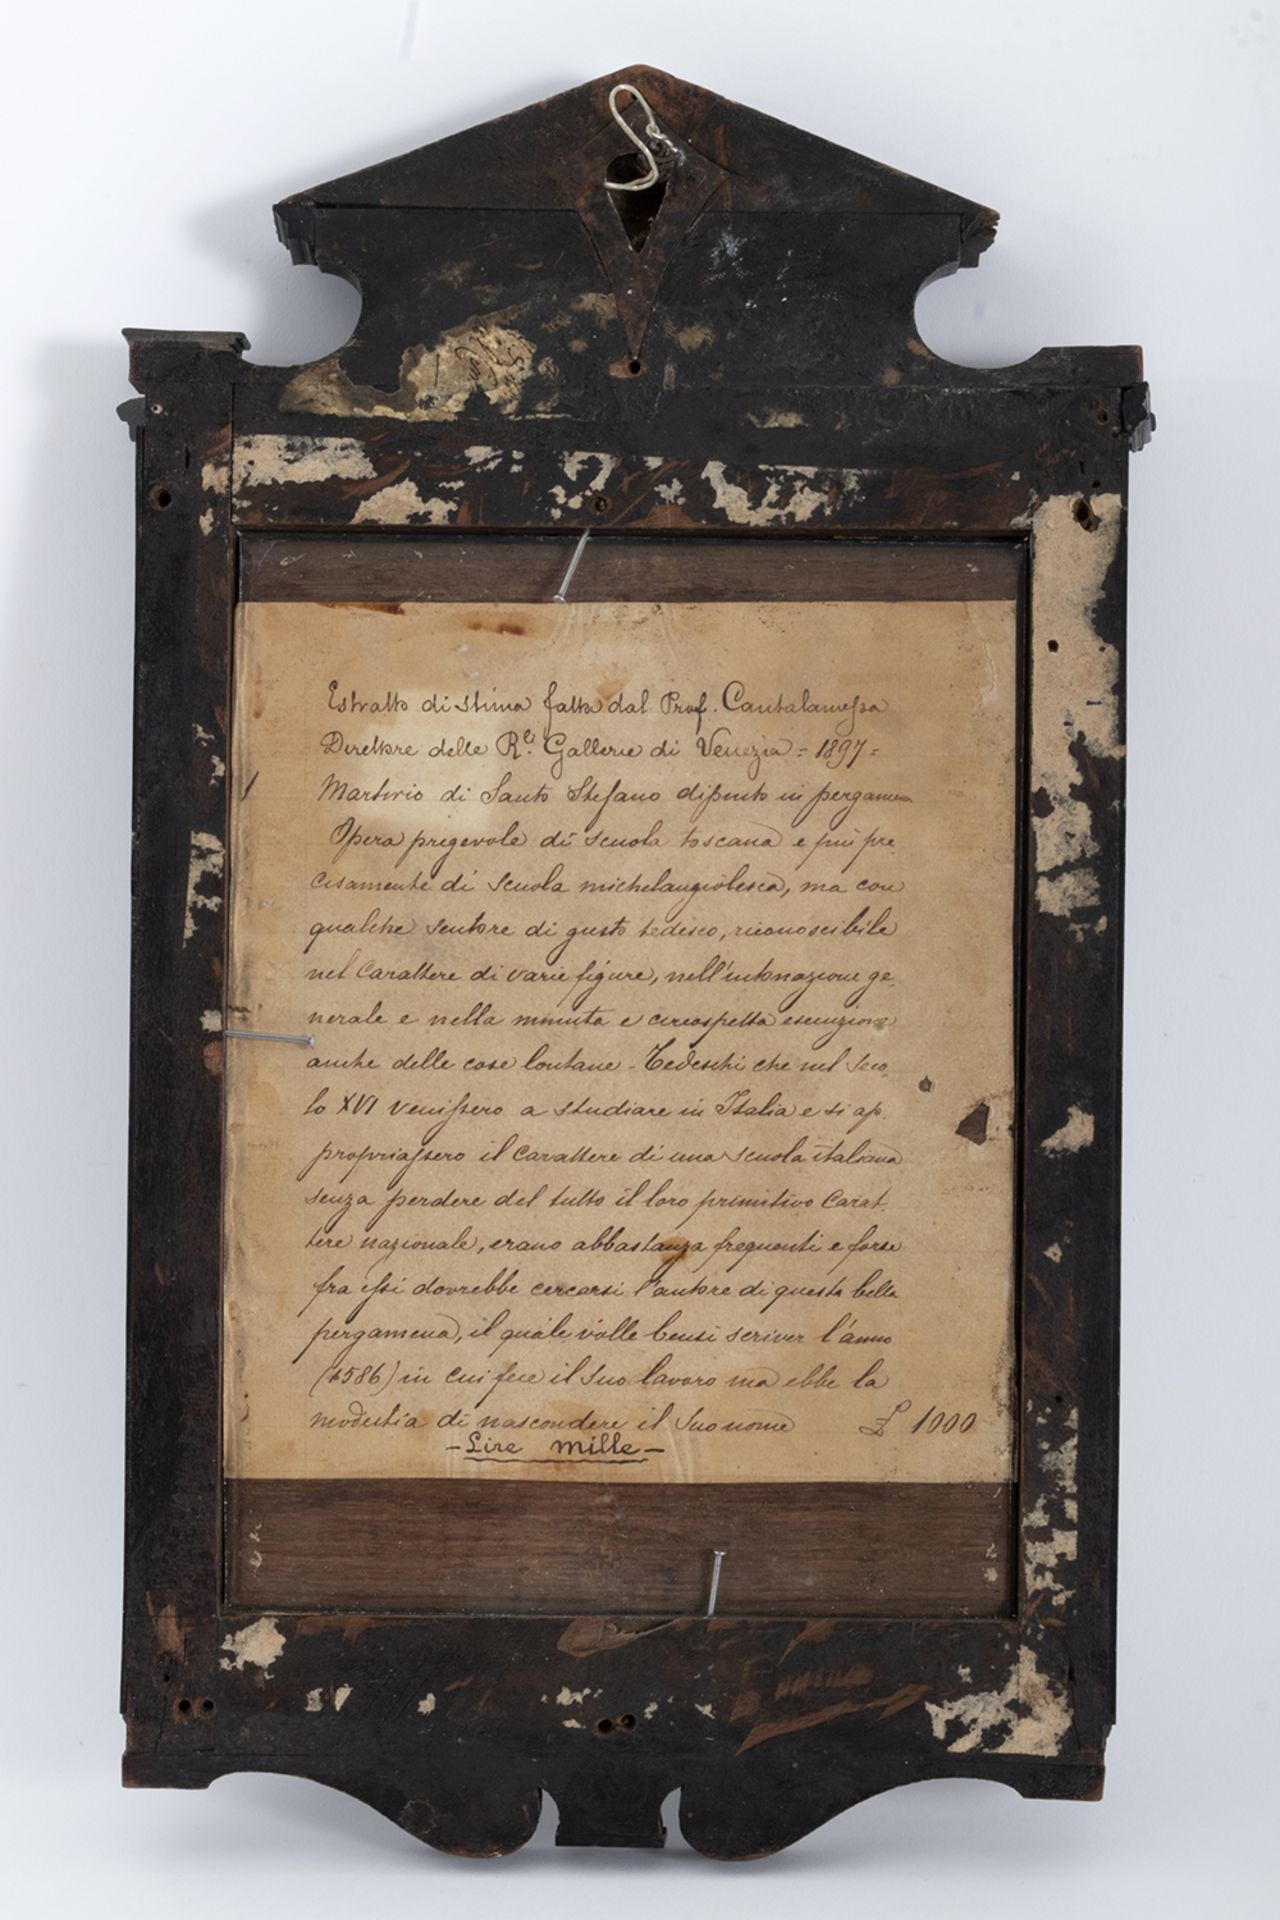 Estratto di stima fatta dal Prof. Cantalamessa
Direttore delle R.li Gallerie di Venezia = 1897 =
Martirio di Santo Stefano dipinto in pergamena
Opera pregevole di scuola toscana e più pre-
cisamente di scuola michelangiolesca, ma con
qualche sentore di gusto tedesco, riconoscibile
nel carattere di varie figure, nell'intonazione ge-
nerale e nella minuta e circospetta esecuzione
anche delle cose lontane - Tedeschi che nel seco-
lo XVI venissero a studiare in Italia e si ap-
propriassero il carattere di una scuola italiana
senza perdere del tutto il loro primitivo carat-
tere nazionale, erano abbastanza frequenti e forse
fra essi dovrebbe cercarsi l'autore di questa bella
pergamena, il quale volle bensì scriver l'anno
(1586) in cui fece il suo lavoro ma ebbe la
modestia di nascondere il suo nome £ 1000
- Lire mille -